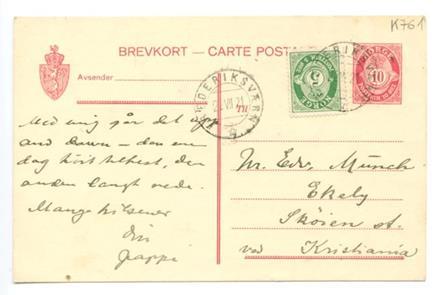 K761
BREVKORT – CARTE POSTALE
Avsender
FREDERIKSVÆRN
2 VII 21
NORGE
5
NORGE
10
Med mig går det upp
and Down – den ene
dag höit tilhest, den
anden langt nede.
Mange hilsener
din
pappi
Hr. Edv. Munch
Ekely
Skøien st.
ved Kristiania